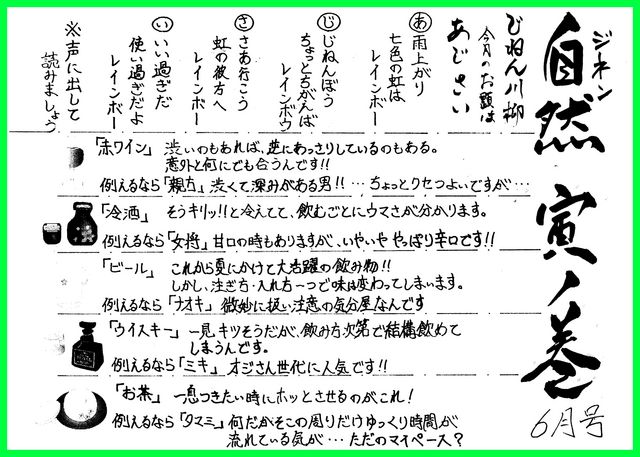 ジネン
自然 寅ノ巻
6月号
じねん川柳
今月のお題は
あじさい
あ 雨上がり
七色の虹は
レインボー
じ じねんぼう
ちょっとちがえば
レインボウ
さ さあ行こう
虹の彼方へ
レインボー
い いい過ぎだ
使い過ぎだよ
レインボー
※声に出して
読みましょう
「赤ワイン」 渋いのもあれば、逆にあっさりしているのもある。
意外と何にでも合うんです!!
例えるなら「親方」渋くて深みがある男!! … ちょっとクセつよいですが…
「冷酒」 そうキリッ!!と冷えてて、飲むごとにウマさが分かります。
例えるなら「女将」甘口の時もありますが、いやいや やっぱり辛口です!!
「ビール」 これから夏にかけて大活躍の飲み物!!
しかし、注ぎ方・入れ方一つで味は変わってしまいます。
例えるなら「ナオキ」 微妙に扱い注意の気分屋なんです
「ウイスキー」 一見キツそうだが、飲み方次第で結構飲めて
しまうんです。
例えるなら「ミキ」 オジさん世代に人気です!!
「お茶」 一息つきたい時にホッとさせるのがこれ!
例えるなら「タマミ」何だかそこの周りだけゆっくり時間が
流れている気が … ただのマイペース?